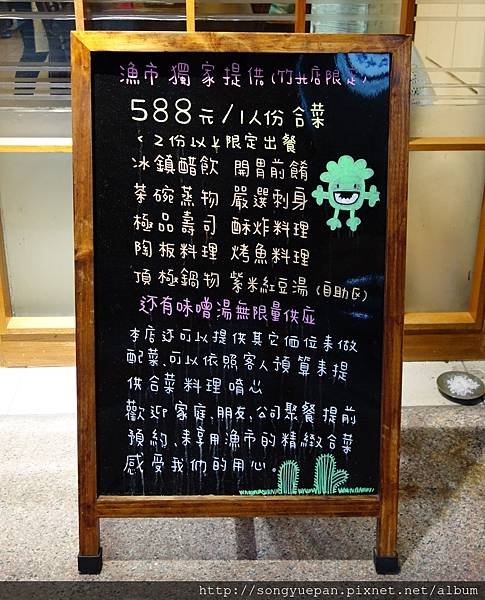 漁市獨家提供(竹北店限定)
588元/1人份合菜
<2份以上限定出餐
冰鎮醋飲 開胃前餚
茶碗蒸物 嚴選刺身
極品壽司 酥炸料理
陶板料理 烤魚料理
頂極鍋物 紫米紅豆湯(自助区)
还有味噌湯無限量供应
本店还可以提供其它價位来做
配菜、可以依照客人預算来提
供合菜料理唷
歡迎家庭、朋友、公司聚餐提前
預約、来享用漁市的精緻合菜
感受我们的用心。
http://songyuepan.pixnet.net/album